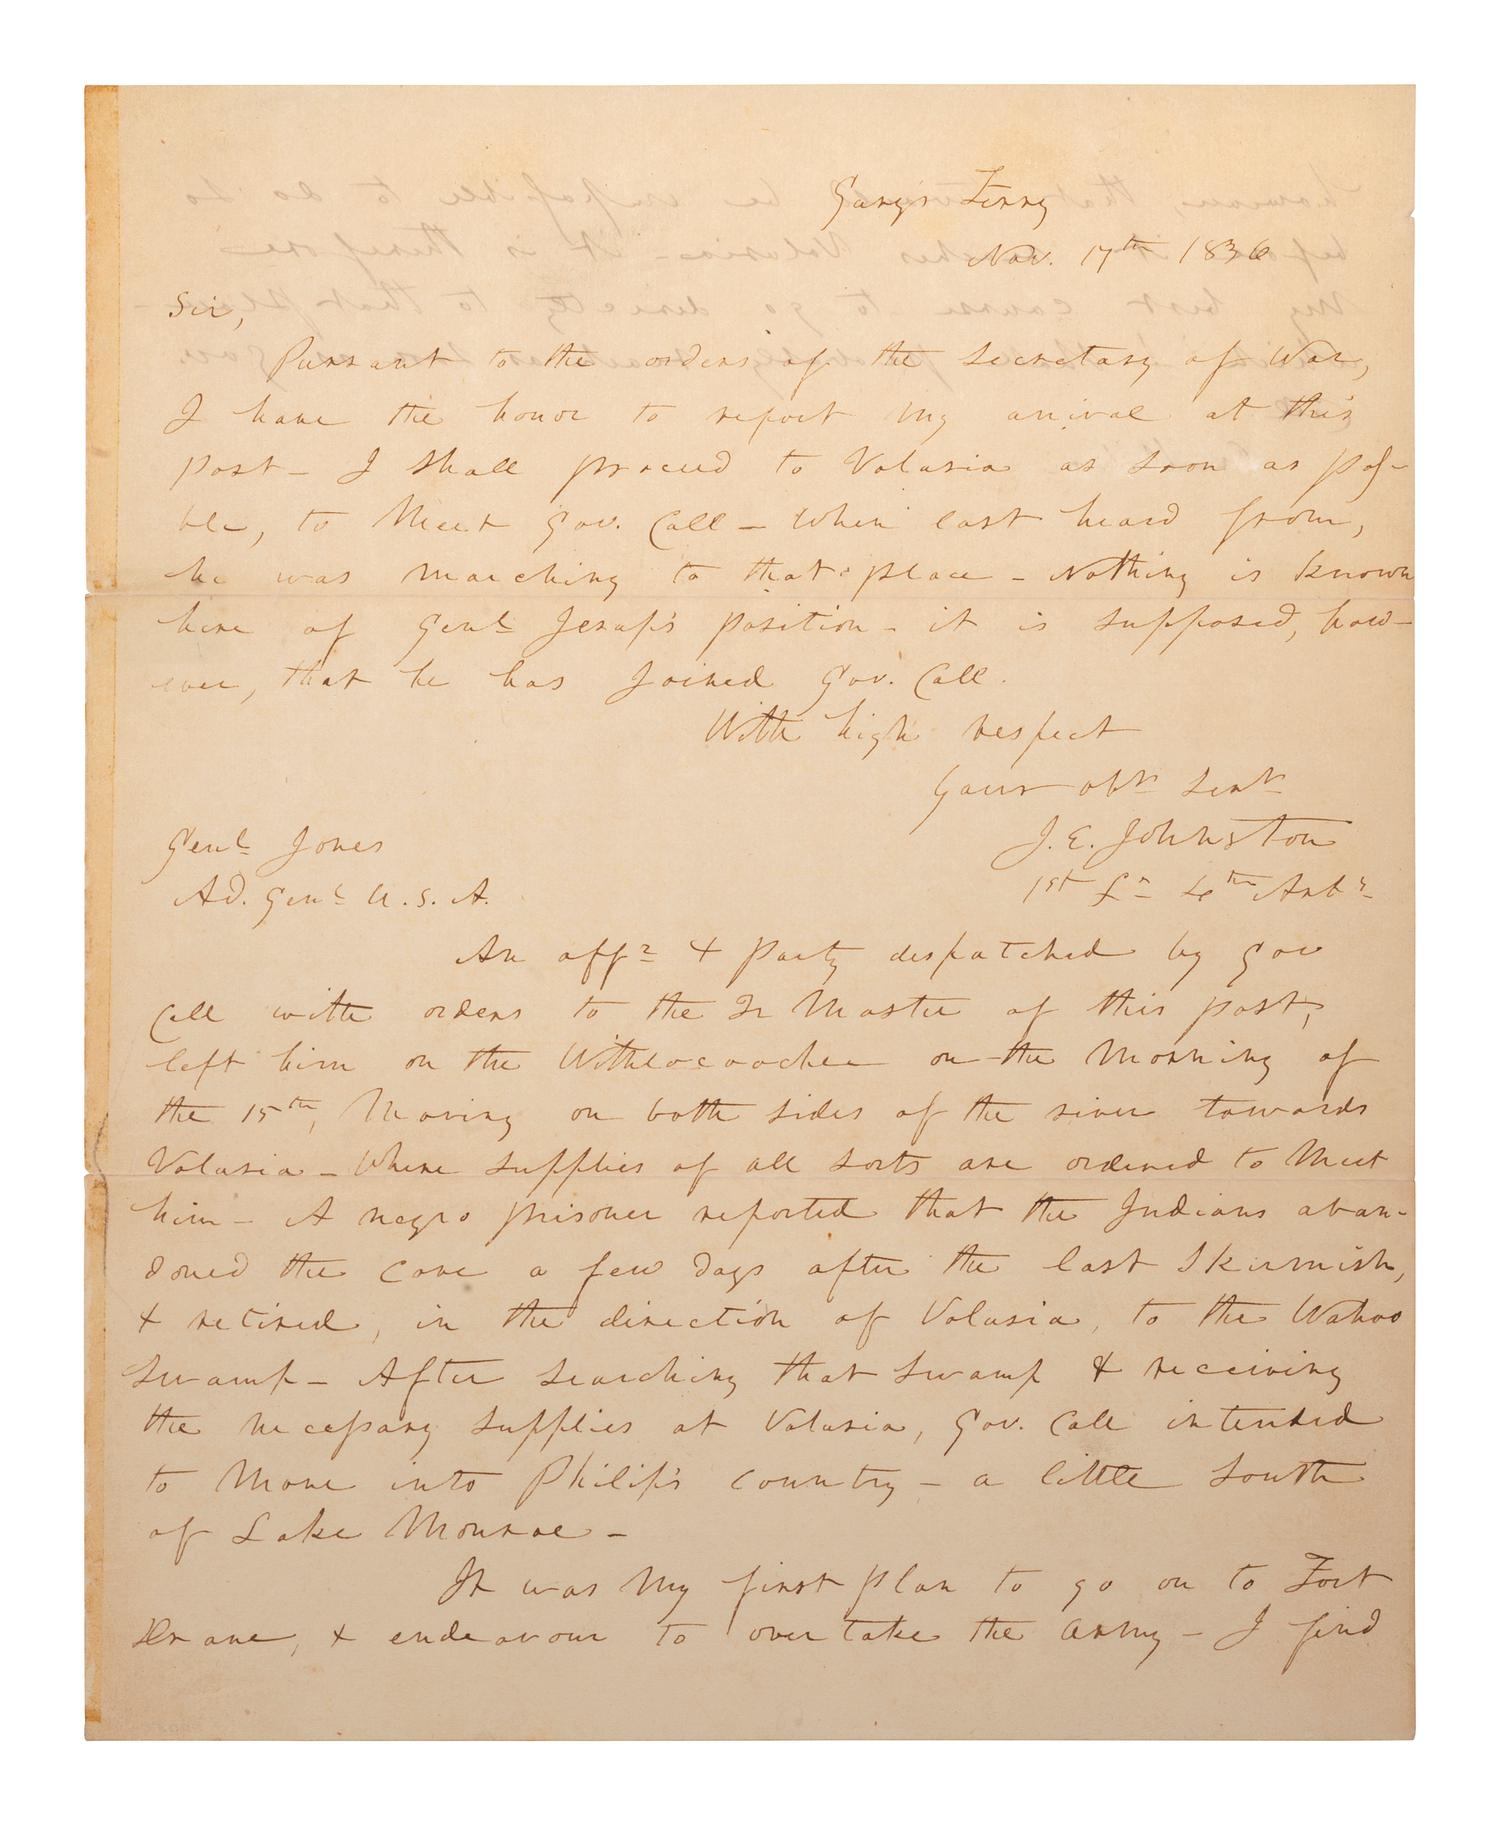 Gary's Ferry
Nov. 17th 1836
Sir,
Pursuant to the orders of the Secretary of War,
I have the honor to report my arrival at this
post - I shall proceed to Volusia as soon as pos-
ble, to meet Gov. Call - When last heard from,
he was marching to that place - Nothing is known
here of Genl Jesup's position - it is supposed, how-
ever, that he has joined Gov. Call.
With high respect
Your obt Servt
J. E. Johnston
1st Lt 4th Arty
Genl Jones
Ad. Genl U. S. A.
An offr & party despatched by Gov
Call with orders to the Qr Master of this post,
left him on the Withlocoochee on the morning of
the 15th, moving on both sides of the river towards
Volusia - Where supplies of all sorts are ordered to meet
him - A negro prisoner reported that the Indians aban-
doned the cove a few days after the last skirmish,
& retired, in the direction of Volusia, to the Wahoo
Swamp - After searching that swamp & receiving
the necessary supplies at Volusia, Gov. Call intended
to move into Philip's country - a little South
of Lake Monroe -
It was my first plan to go on to Fort
Drane, & endeavour to overtake the army - I find